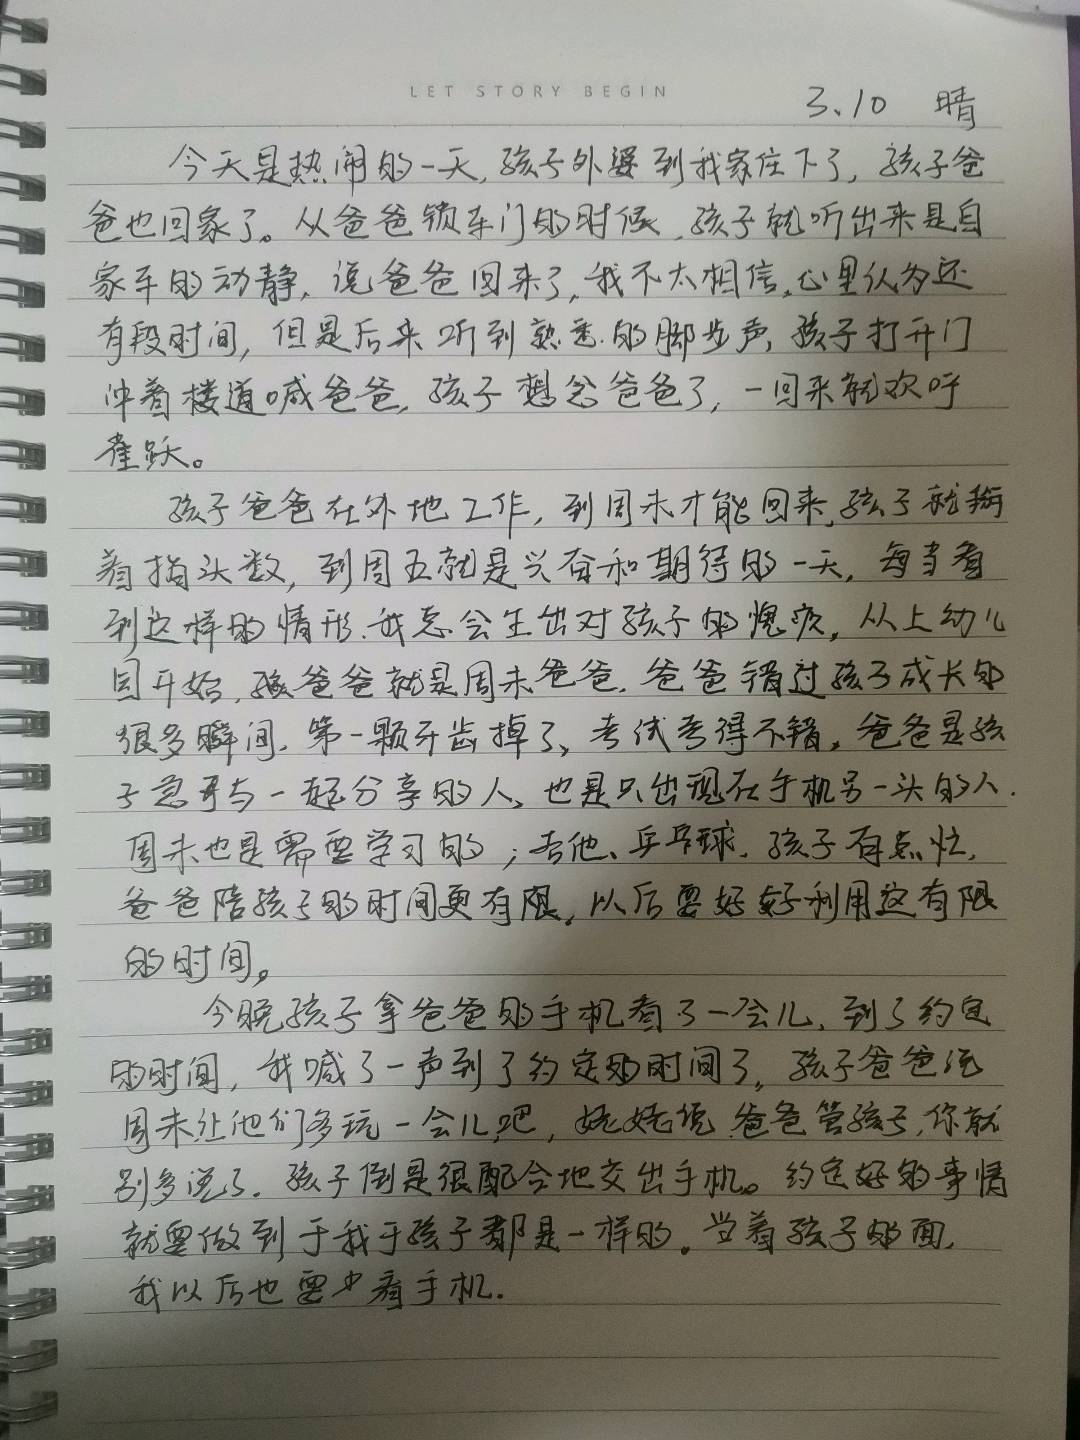 LET STORY BEGIN
3.10 晴
今天是热闹的一天,孩子外婆到我家住下了,孩子爸
爸也回家了。从爸爸锁车门的时候,孩子就听出来是自
家车的动静,说爸爸回来了,我不太相信,心里认为还
有段时间,但是后来听到熟悉的脚步声,孩子打开门
冲着楼道喊爸爸,孩子想念爸爸了,一回来就欢呼
雀跃。
孩子爸爸在外地工作,到周末才能回来,孩子就掰
着指头数,到周五就是兴奋和期待的一天,每当看
到这样的情形、我总会生出对孩子的愧疚,从上幼儿
园开始,孩爸爸就是周末爸爸,爸爸错过孩子成长的
很多瞬间,第一颗牙齿掉了,考试考得不错,爸爸是孩
子急于与一起分享的人,也是只出现在手机另一头的人.
周末也是需要学习的;吉他、乒乓球,孩子有点忙,
爸爸陪孩子的时间更有限,以后要好好利用这有限
的时间。
今晚孩子拿爸爸的手机看了一会儿,到了约定
的时间,我喊了一声到了约定的时间了,孩子爸爸说
周末让他们多玩一会儿吧,姥姥说,爸爸管孩子,你就
别多说了.孩子倒是很配合地交出手机。约定好的事情
就要做到于我于孩子都是一样的,当着孩子的面,
我以后也要少看手机.